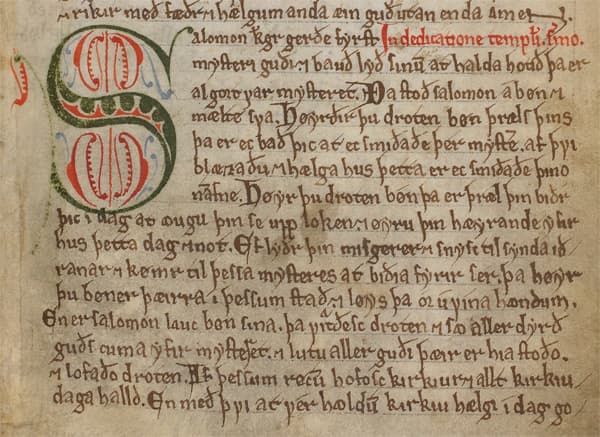 ⁊ rikir með fæðr ⁊ hælgum anda æin guð utan enda amen
Salomon kgr gerðe fyrst In dedicatione templi. sermo.
mysteri guði ⁊ bauð lyð sinū at halda hotið þa er
algort var mysteret. Þa stoð salomon a bøn ⁊
mælte sva. Høyrðu þu droten bøn þræls þins
þa er ec bað þic at ec smiðaðe þer myster. at þu
blæzaðu ⁊ hælga hus þetta er ec smiðaðe þino
nāfne. Høyr þu droten bøn þa er þræl þin biðr
þic i dag at ougu þin se upp loken ⁊ øyru þin hæyrande yfir
hus þetta dag ⁊ not. Ef lyðr þin misgerer ⁊ snysc til synda ið-
ranar ⁊ kømr til þessa mysteres at biðia fyrir ser, þa høyr
þu bøner þæirra i þessum stað ⁊ løys þa or uvina hændum.
En er salomon lauc bøn sina. þa vitraðesc droten ⁊ so aller dyrð
guðs cuma yfir mysteret. ⁊ lutu aller guði þæir er hia stoðo.
⁊ lofaðo droten. Af þessum rocū hofosc kirkiur ⁊ allt kirkiu
daga halld. En með þvi at ver hældū kirkiu hælgi i dag go